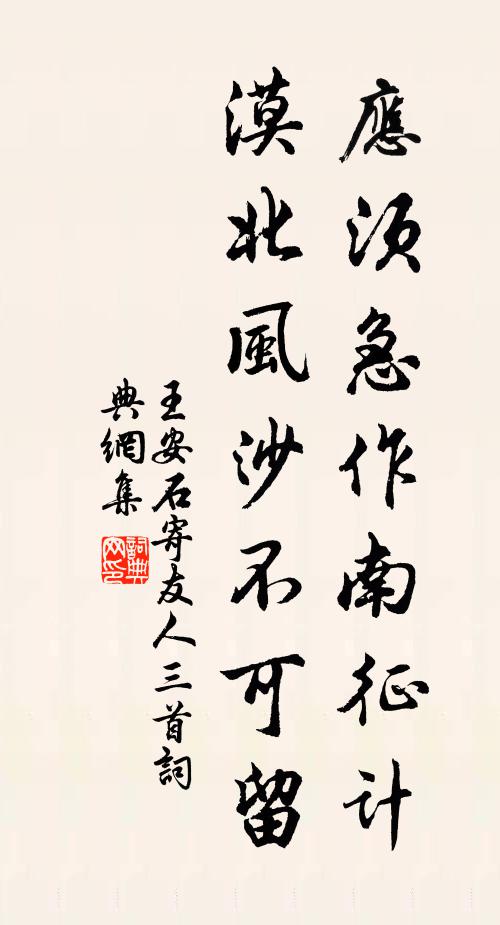 應須急作南征計
漠北風沙不可留
王安石寄友人三首詞
典網集
詞典網印